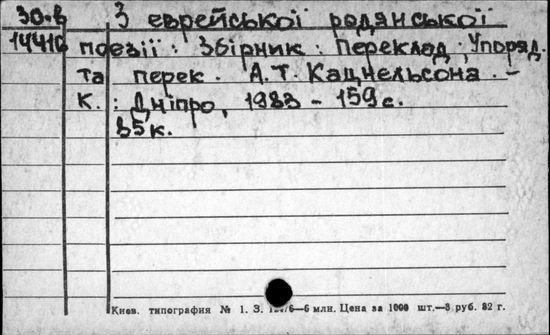 30.-8 З еврейської радянської
14416 поезії : Збірник : Переклад ; Упоряд.
та перек. А. Т. Кацнельсона. –
К. : Дніпро, 1983 – 159 с.
85 к.
Киев. типография № 1. З. 6—6 млн. Цена за 1000 шт.—3 руб. 82 г.